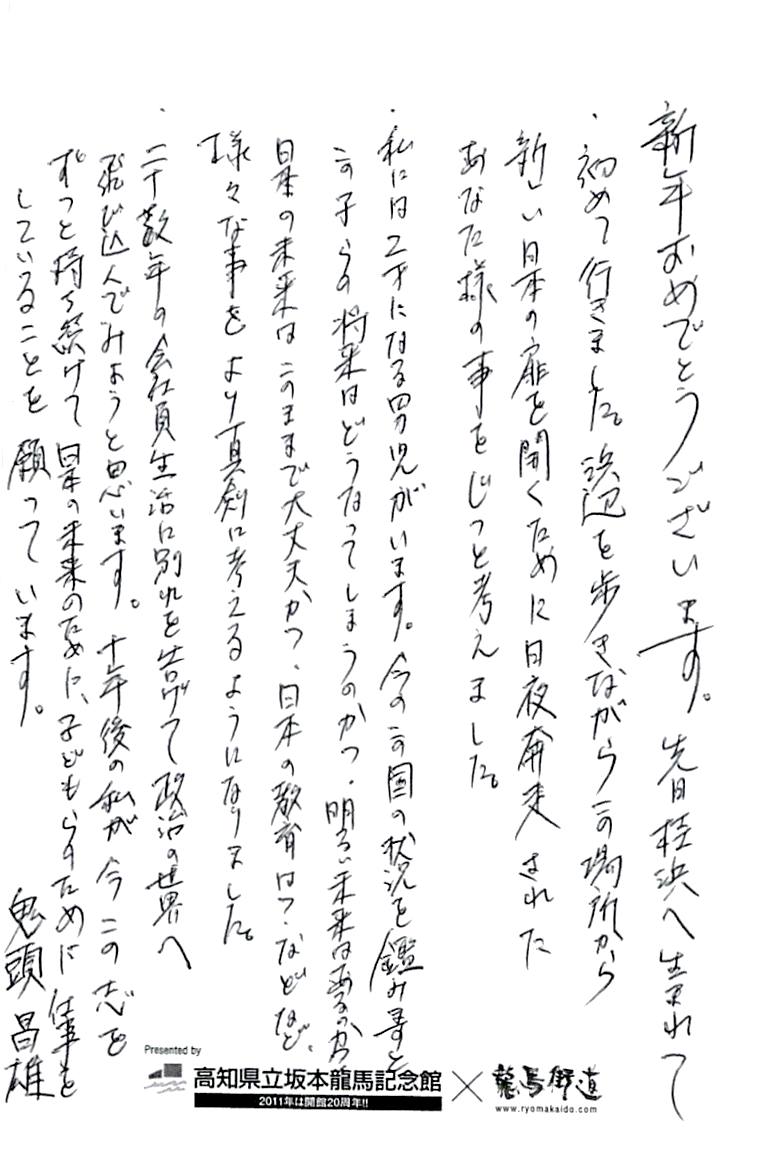 新年おめでとうございます。先日桂浜へ生まれて
・初めて行きました。浜辺を歩きながらこの場所から
新しい日本の扉を開くために日夜奔走された
あなた様の事をじっと考えました。
・私には2才になる男児がいます。今のこの国の状況を鑑み寿と
この子らの将来はどうなってしまうのかっ・明るい未来はあるのかっ
日本の未来はこのままで大丈夫かっ、日本の教育はっ・などなど、
様々な事をより真剣に考えるようになりました。
・二十数年の会社員生活に別れを告げて政治の世界へ
飛び込んでみようと思います。十年後の私が今この志を
ずっと持ち続けて日本の未来のために、子どもらのために仕事を
していることを願っています。
鬼頭昌雄
Presented by
高知県立坂本龍馬記念館 × 龍馬街道
2011年は開館20周年!!
www.ryomakaido.com